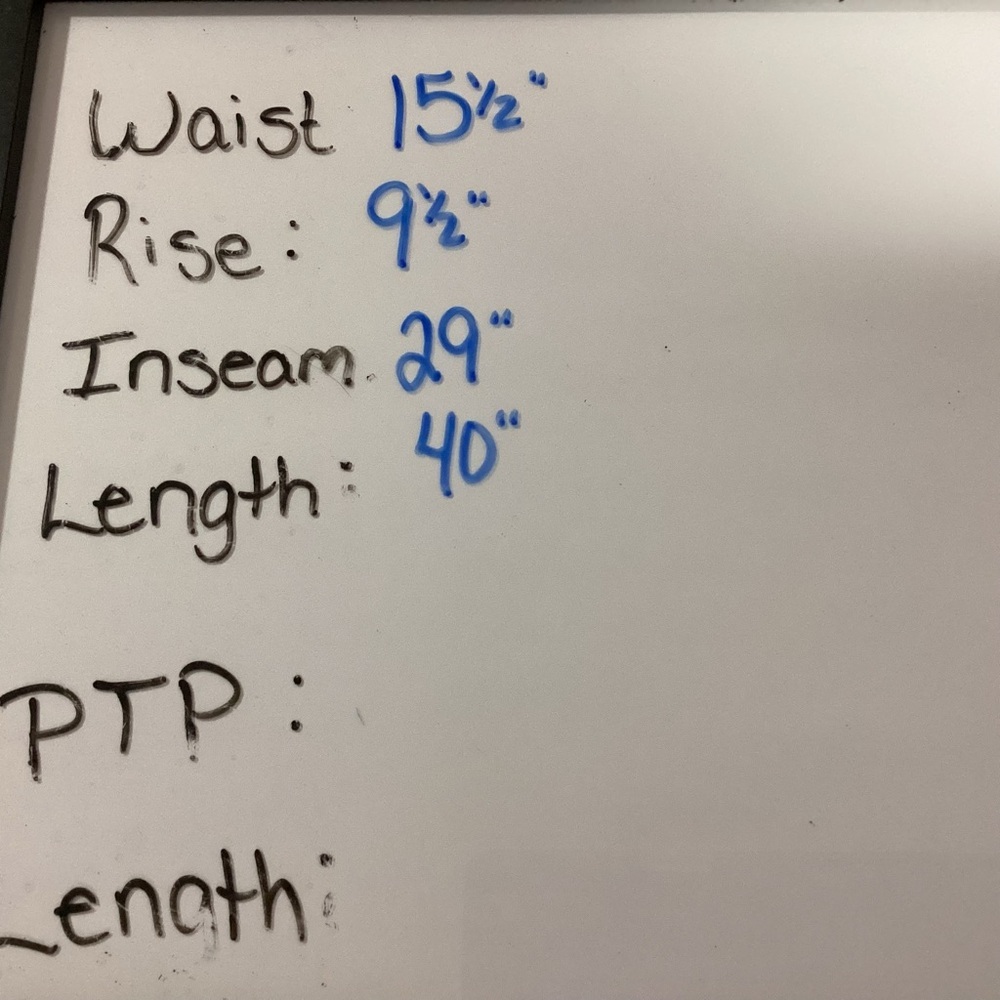 Waist 15½"
Rise: 9½"
Inseam. 29"
Length: 40"
PTP:
Length: